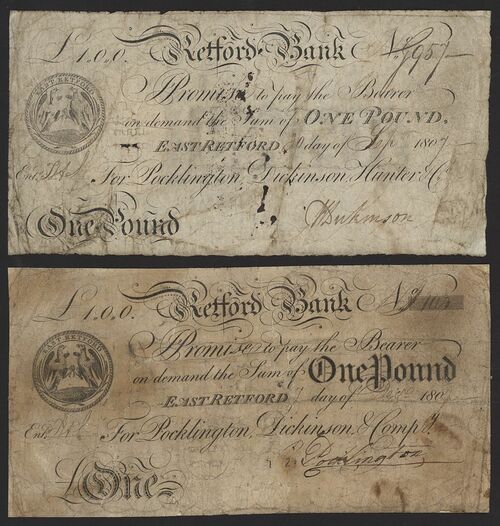 £1.0.0. Retford Bank No
EAST RETFORD
I Promise to pay the Bearer
on demand the Sum of ONE POUND.
EAST RETFORD, day of Sep 1807
Ent.
For Pocklington, Dickinson, Hunter & Co.
One Pound
W Dickinson
£1.0.0. Retford Bank No
EAST RETFORD
I Promise to pay the Bearer
on demand the Sum of One Pound
EAST RETFORD day of 180
Ent.
For Pocklington, Dickinson, & Compy.
£One
Pocklington